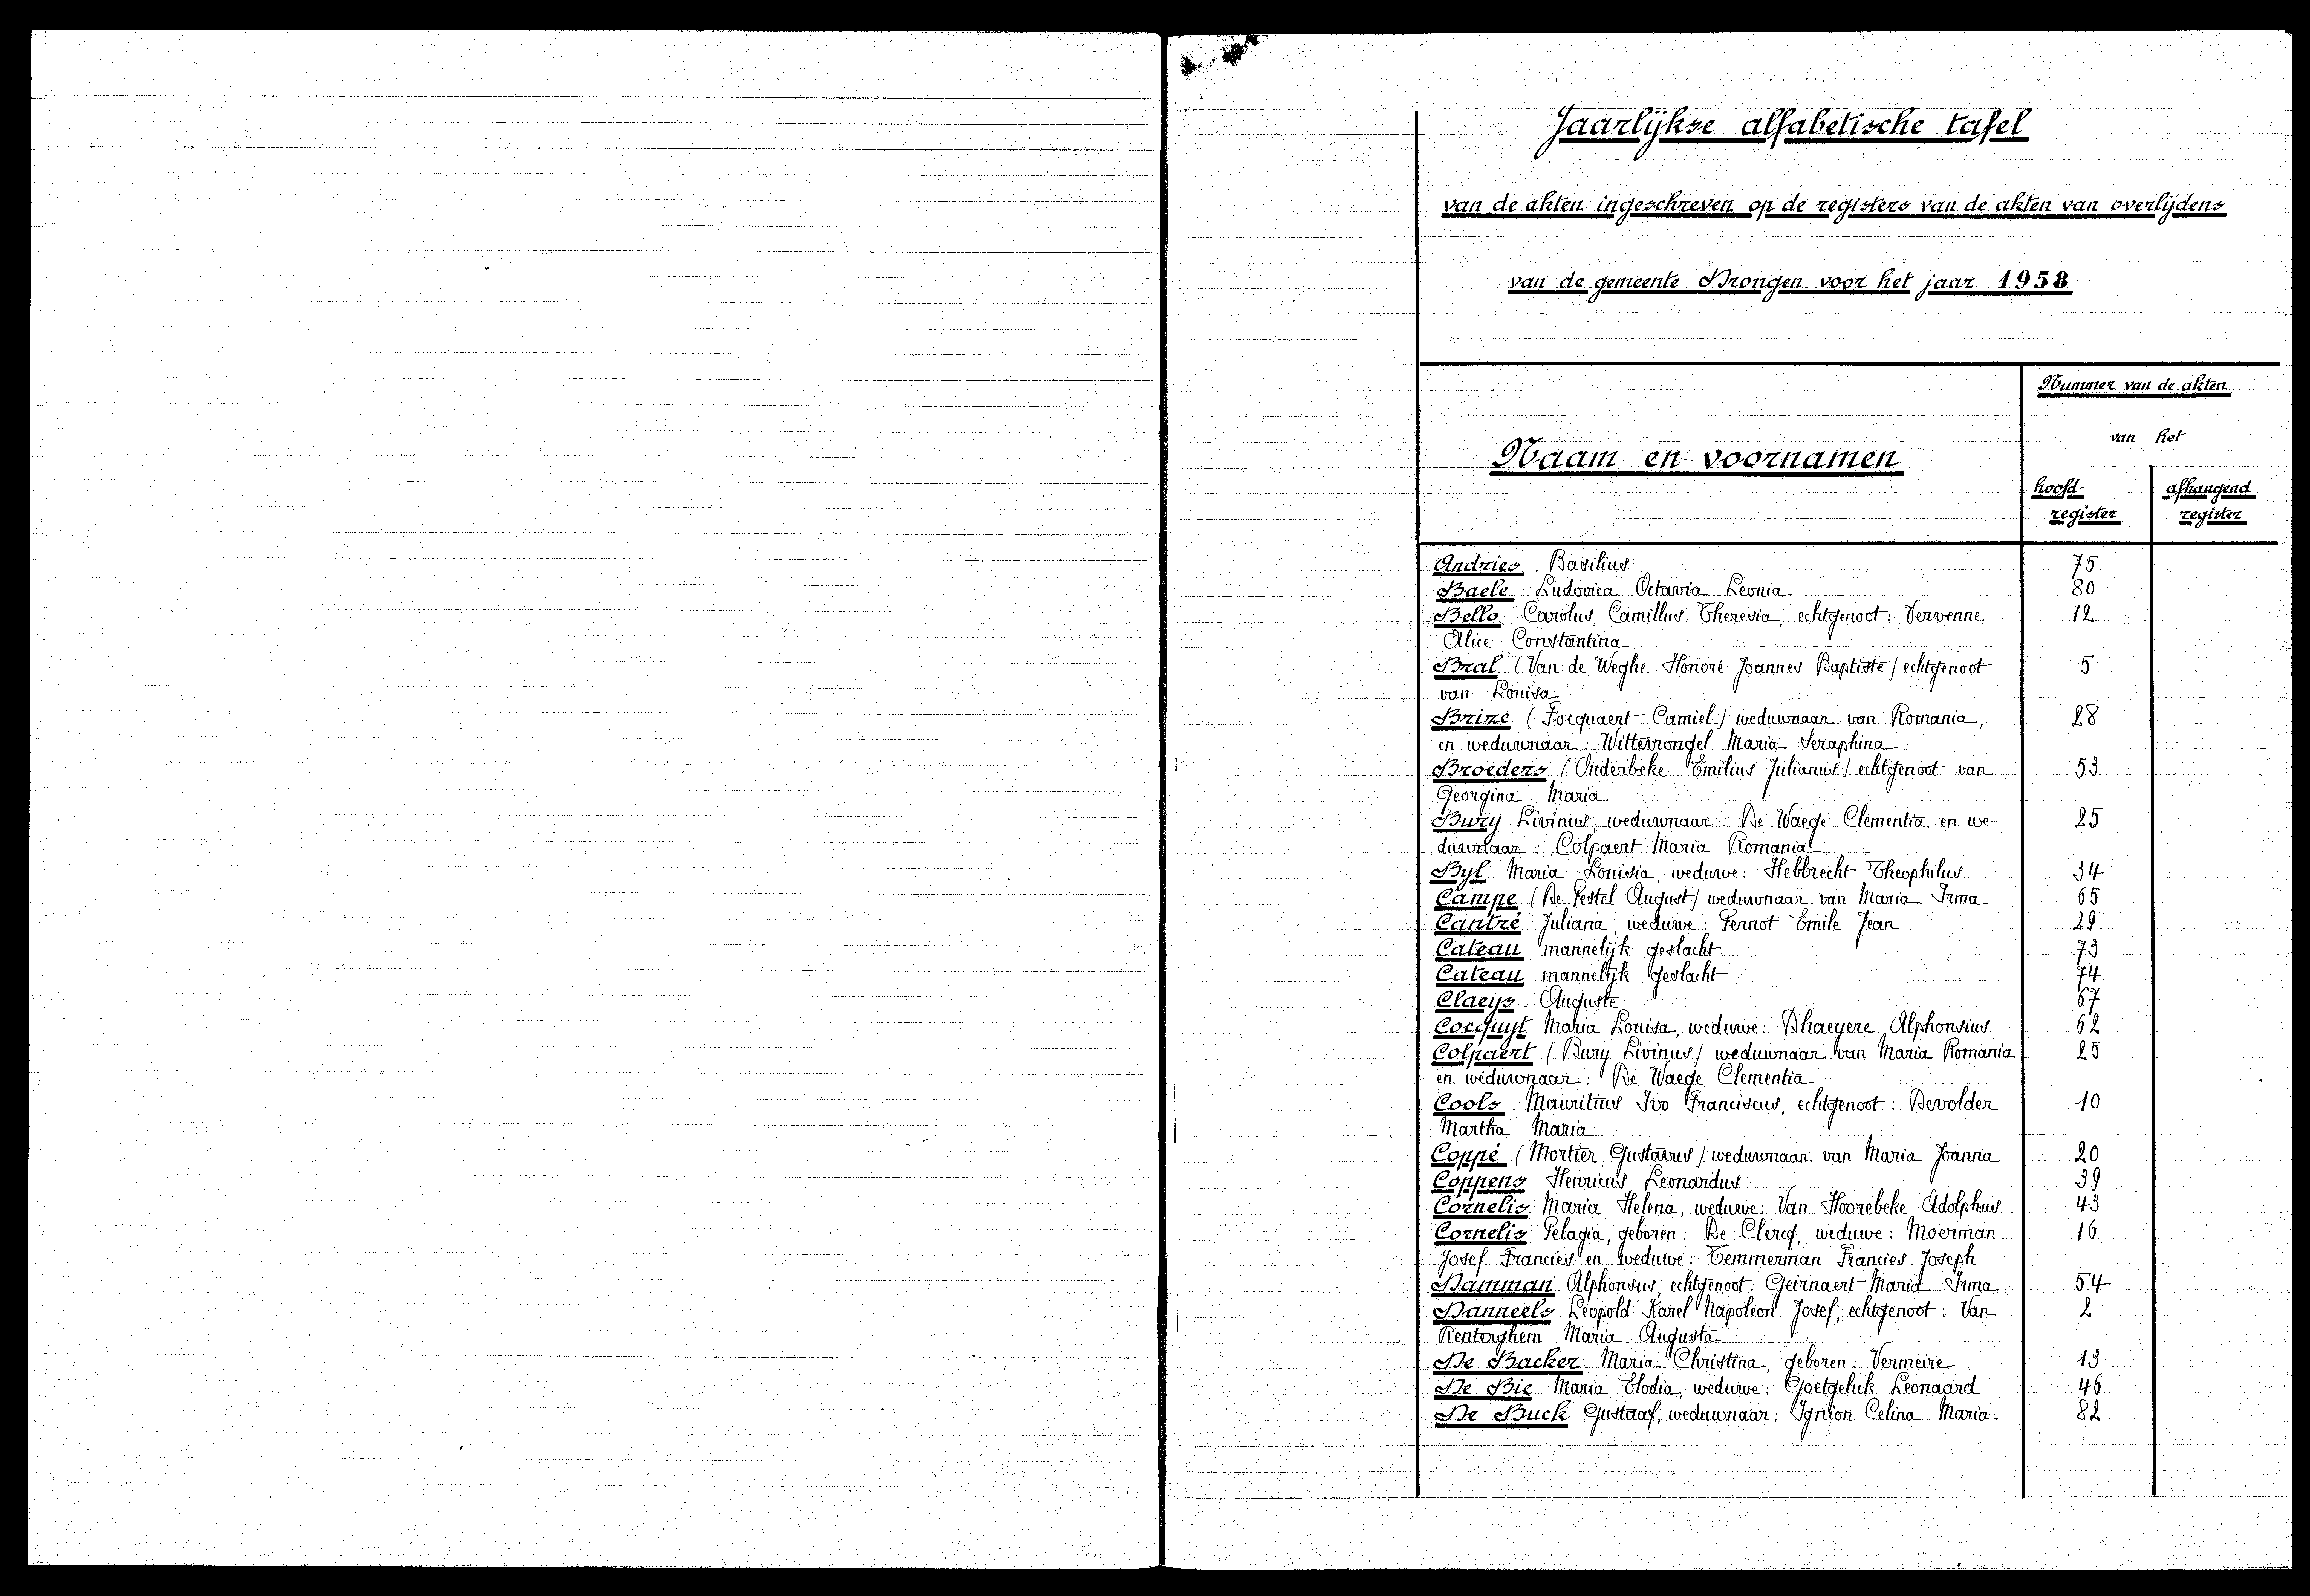 Jaarlijkse alfabetische tafel
van de akten ingeschreven op de registers van de akten van overlijdens
van de gemeente Drongen voor het jaar 1958
Nummer van de akten
van het
Naam en voornamen
hoofd- afhangend
register register
Andries Basilius 75
Baele Ludovica Octavia Leonia 80
Bello Carolus Camillus Theresia, echtgenoot: Vervenne 12
Alice Constantina
Bral (Van de Weghe Honoré Joannes Baptiste) echtgenoot 5
van Louisa
Brize (Focquaert Camiel) weduwnaar van Romania, 28
en weduwnaar: Witterrongel Maria Seraphina
Broeders (Onderbeke Emilius Julianus) echtgenoot van 53
Georgina Maria
Bury Livinus, weduwnaar: De Waege Clementia en we- 25
duwnaar: Colpaert Maria Romania
Byl Maria Louisia, weduwe: Hebbrecht Theophilus 34
Campe (De Pestel August) weduwnaar van Maria Irma 65
Cantré Juliana, weduwe: Pernot Emile Jean 29
Cateau mannelijk geslacht 73
Cateau mannelijk geslacht 74
Claeys Auguste 67
Cocquyt Maria Louisa, weduwe: Dhaeyere Alphonsius 62
Colpaert (Bury Livinus) weduwnaar van Maria Romania 25
en weduwnaar: De Waege Clementia
Cools Mauritius Ivo Franciscus, echtgenoot: Devolder 10
Martha Maria
Coppé (Mortier Gustavus) weduwnaar van Maria Joanna 20
Coppens Henricus Leonardus 39
Cornelis Maria Helena, weduwe: Van Hoorebeke Adolphus 43
Cornelis Pelagia, geboren: De Clercq, weduwe: Moerman 16
Josef Francies en weduwe: Temmerman Francies Joseph
Damman Alphonsus, echtgenoot: Geirnaert Maria Irma 54
Danneels Leopold Karel Napoleon Josef, echtgenoot: Van 2
Renterghem Maria Augusta
De Backer Maria Christina, geboren: Vermeire 13
De Bie Maria Elodia, weduwe: Goetgeluk Leonaard 46
De Buck Gustaaf, weduwnaar: Ignion Celina Maria 82